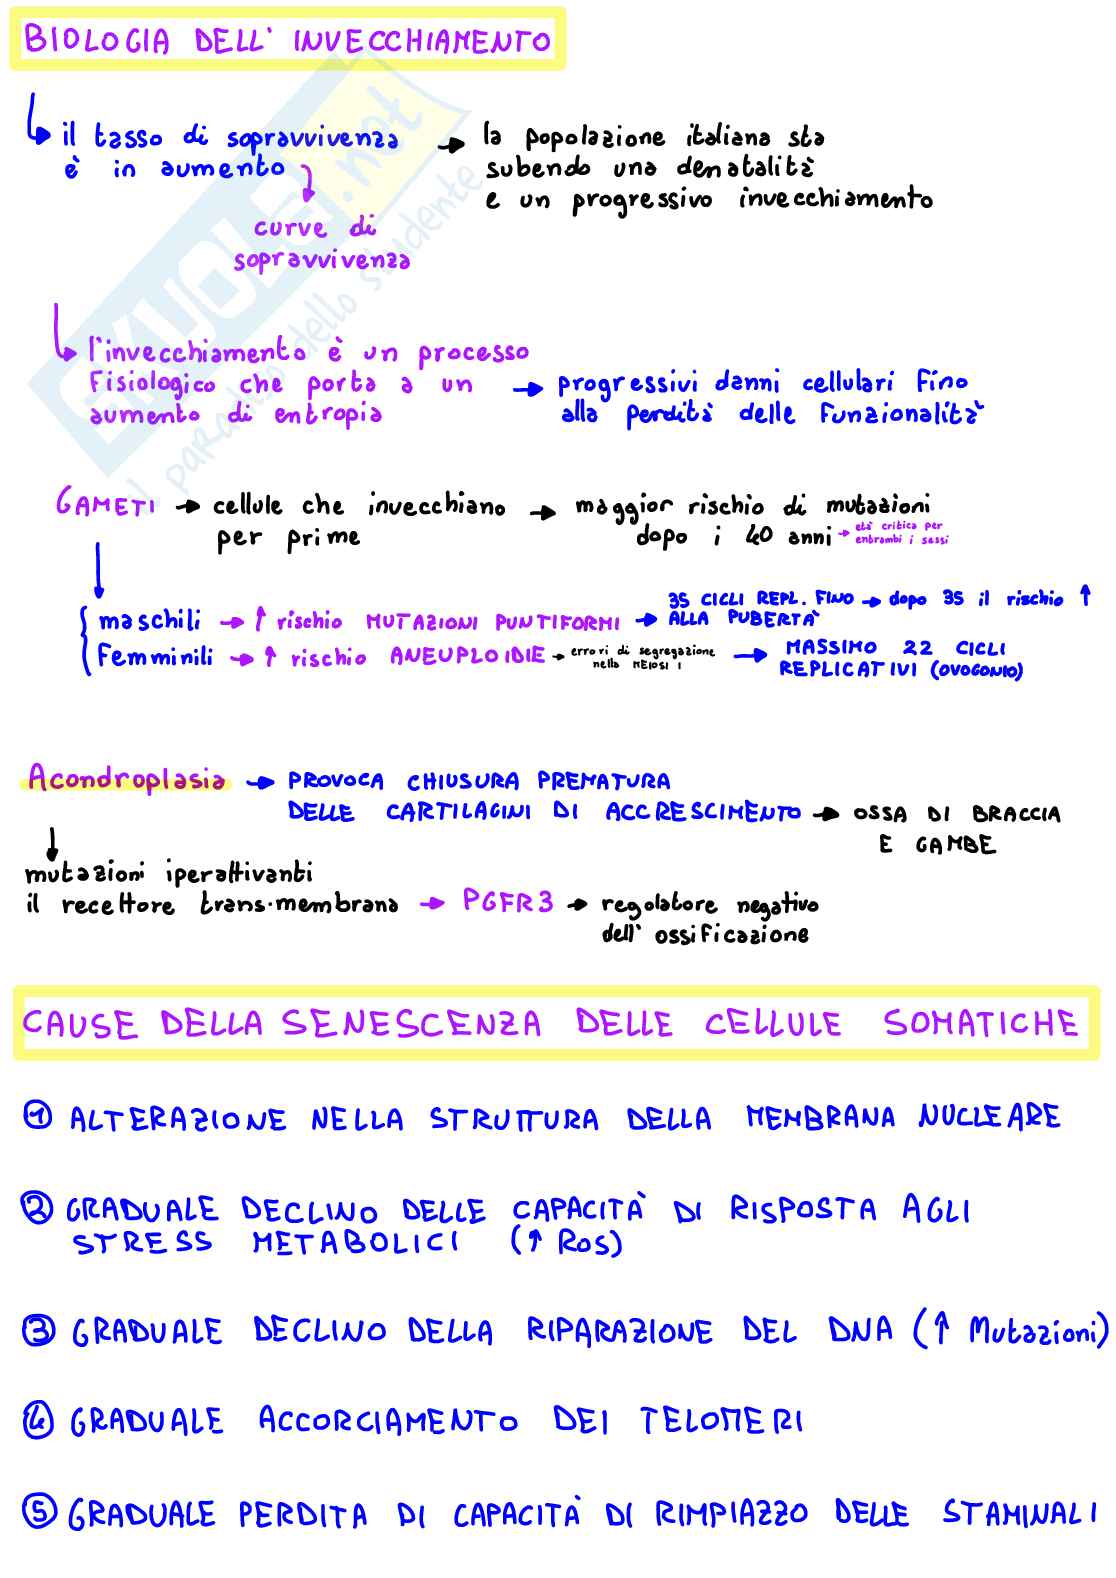 BIOLOGIA DELL' INVECCHIAMENTO
il tasso di sopravvivenza → la popolazione italiana sta
è in aumento subendo una denatalità
e un progressivo invecchiamento
curve di
sopravvivenza
l'invecchiamento è un processo
fisiologico che porta a un → progressivi danni cellulari fino
aumento di entropia alla perdità delle funzionalità
GAMETI → cellule che invecchiano → maggior rischio di mutazioni
per prime dopo i 40 anni → età critica per
entrambi i sessi
35 CICLI REPL. FINO → dopo 35 il rischio ↑
maschili → ↑ rischio MUTAZIONI PUNTIFORMI → ALLA PUBERTÀ
femminili → ↑ rischio ANEUPLOIDIE → errori di segregazione → MASSIMO 22 CICLI
nella MEIOSI I REPLICATIVI (OVOGONIO)
Acondroplasia → PROVOCA CHIUSURA PREMATURA
DELLE CARTILAGINI DI ACCRESCIMENTO → OSSA DI BRACCIA
E GAMBE
mutazioni iperattivanti
il recettore trans-membrana → PGFR3 → regolatore negativo
dell' ossificazione
CAUSE DELLA SENESCENZA DELLE CELLULE SOMATICHE
① ALTERAZIONE NELLA STRUTTURA DELLA MEMBRANA NUCLEARE
② GRADUALE DECLINO DELLE CAPACITÀ DI RISPOSTA AGLI
STRESS METABOLICI (↑ ROS)
③ GRADUALE DECLINO DELLA RIPARAZIONE DEL DNA (↑ Mutazioni)
④ GRADUALE ACCORCIAMENTO DEI TELOMERI
⑤ GRADUALE PERDITA DI CAPACITÀ DI RIMPIAZZO DELLE STAMINALI
SKUOLA.net
il paradiso dello studente